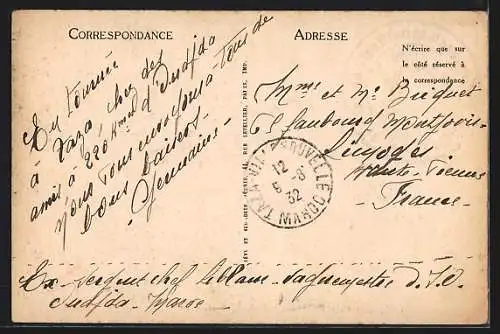 CORRESPONDANCE
En tournée
à Taza chez des
amis à 220 kms d'Oudjda
nous vous envoyons tous de
bons baisers
Germaine
ADRESSE
N'écrire que sur
le côté réservé à
la correspondance
Mme et Mr Briquet
65 Faubourg Montjovis
Limoges
Haute-Vienne
France
TAZA VILLE NOUVELLE MAROC
12
5 -8
32
Ex- Sergent chef Leblanc - Vaguemestre
Oudjda - Maroc